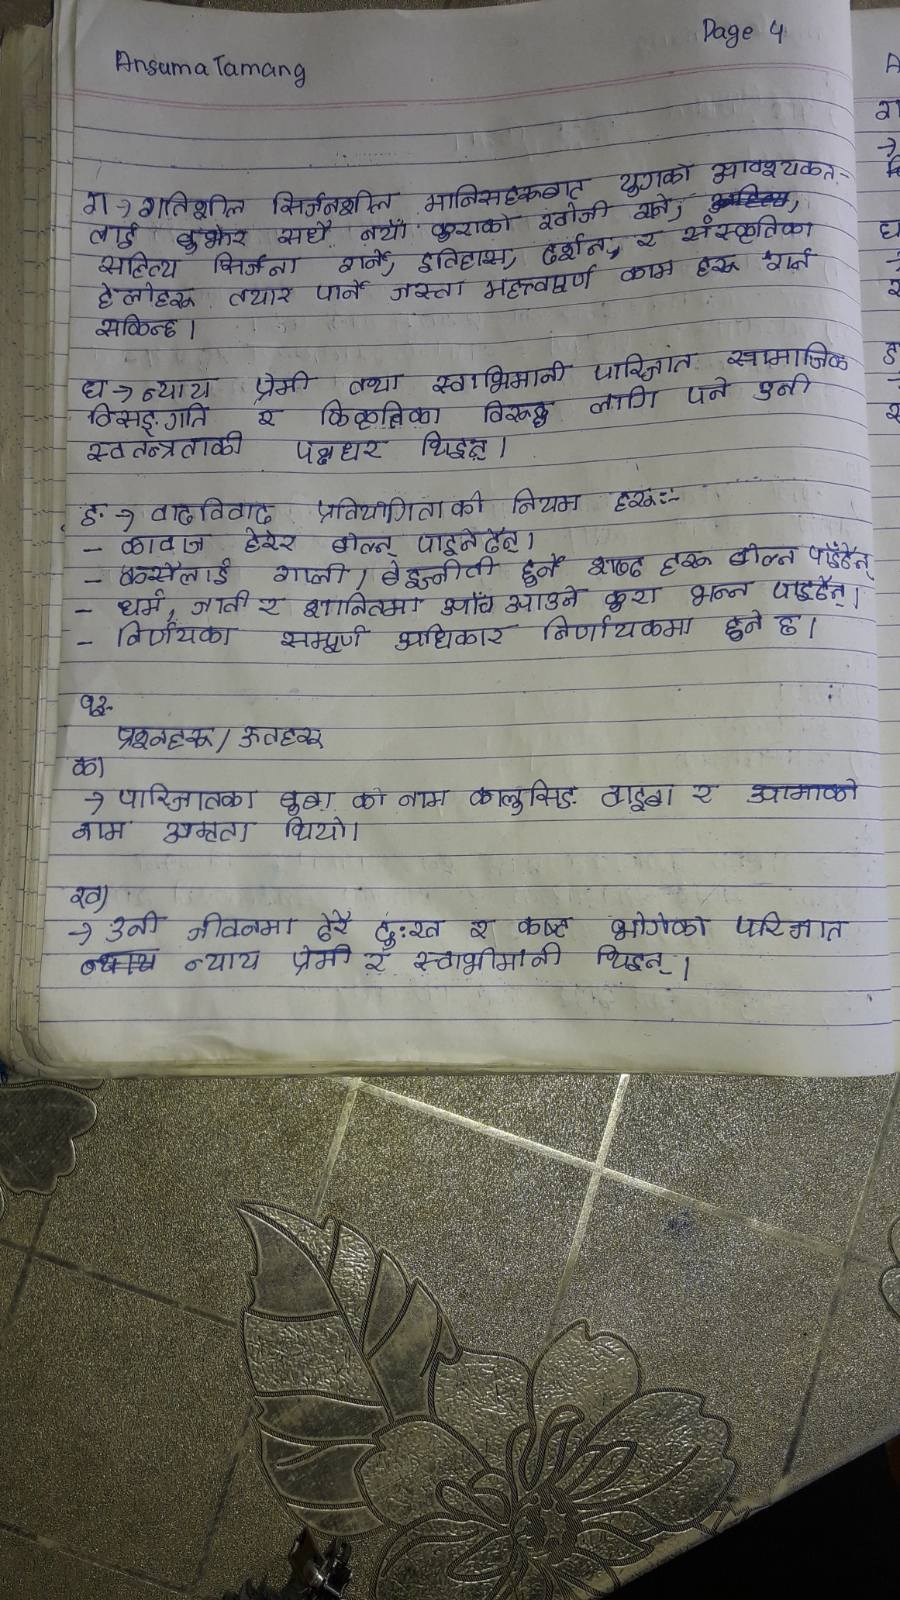 Page 4
Ansuma Tamang
ग → गतिशील सिर्जनशील मानिसहरूबाट युगको आवश्यकता-
लाई बुझेर सधैं नयाँ कुराको खोजी गर्ने,
साहित्य सिर्जना गर्ने, इतिहास, दर्शन, र सँस्कृतिका
हेलोहरू तयार पार्ने जस्ता महत्त्वपूर्ण काम हरू गर्न
सकिन्छ।
घ → न्याय प्रेमी तथा स्वाभिमानी पारिजात सामाजिक
विसङ्गति र विकृतिका विरूद्ध लागि पर्ने हुनी
स्वतन्त्रताकी पक्षधर थिइन्।
ङ → वादविवाद प्रतियोगिताको नियम हरू:-
- कागज हेरेर बोल्न पाइनेछैन।
- कसैलाई गाली, बेइज्जीती हुने शब्द हरू बोल्न पाइँदैन्
- धर्म, जाती र शान्तिमा आँच आउने कुरा भन्न पाइदैन्।
- निर्णयका सम्पूर्ण अधिकार निर्णायकमा हुने छ।
प्रश्नहरू/ उतहरू
क)
→ पारिजातका बुबा को नाम कालुसिङ वाइबा र आमाको
नाम अमृता थियो।
ख)
→ उनी जीवनमा ढेरै दु:ख र कष्ट भोगेको परिजात
न्याय प्रेमी र स्वाभीमानी थिइन्।